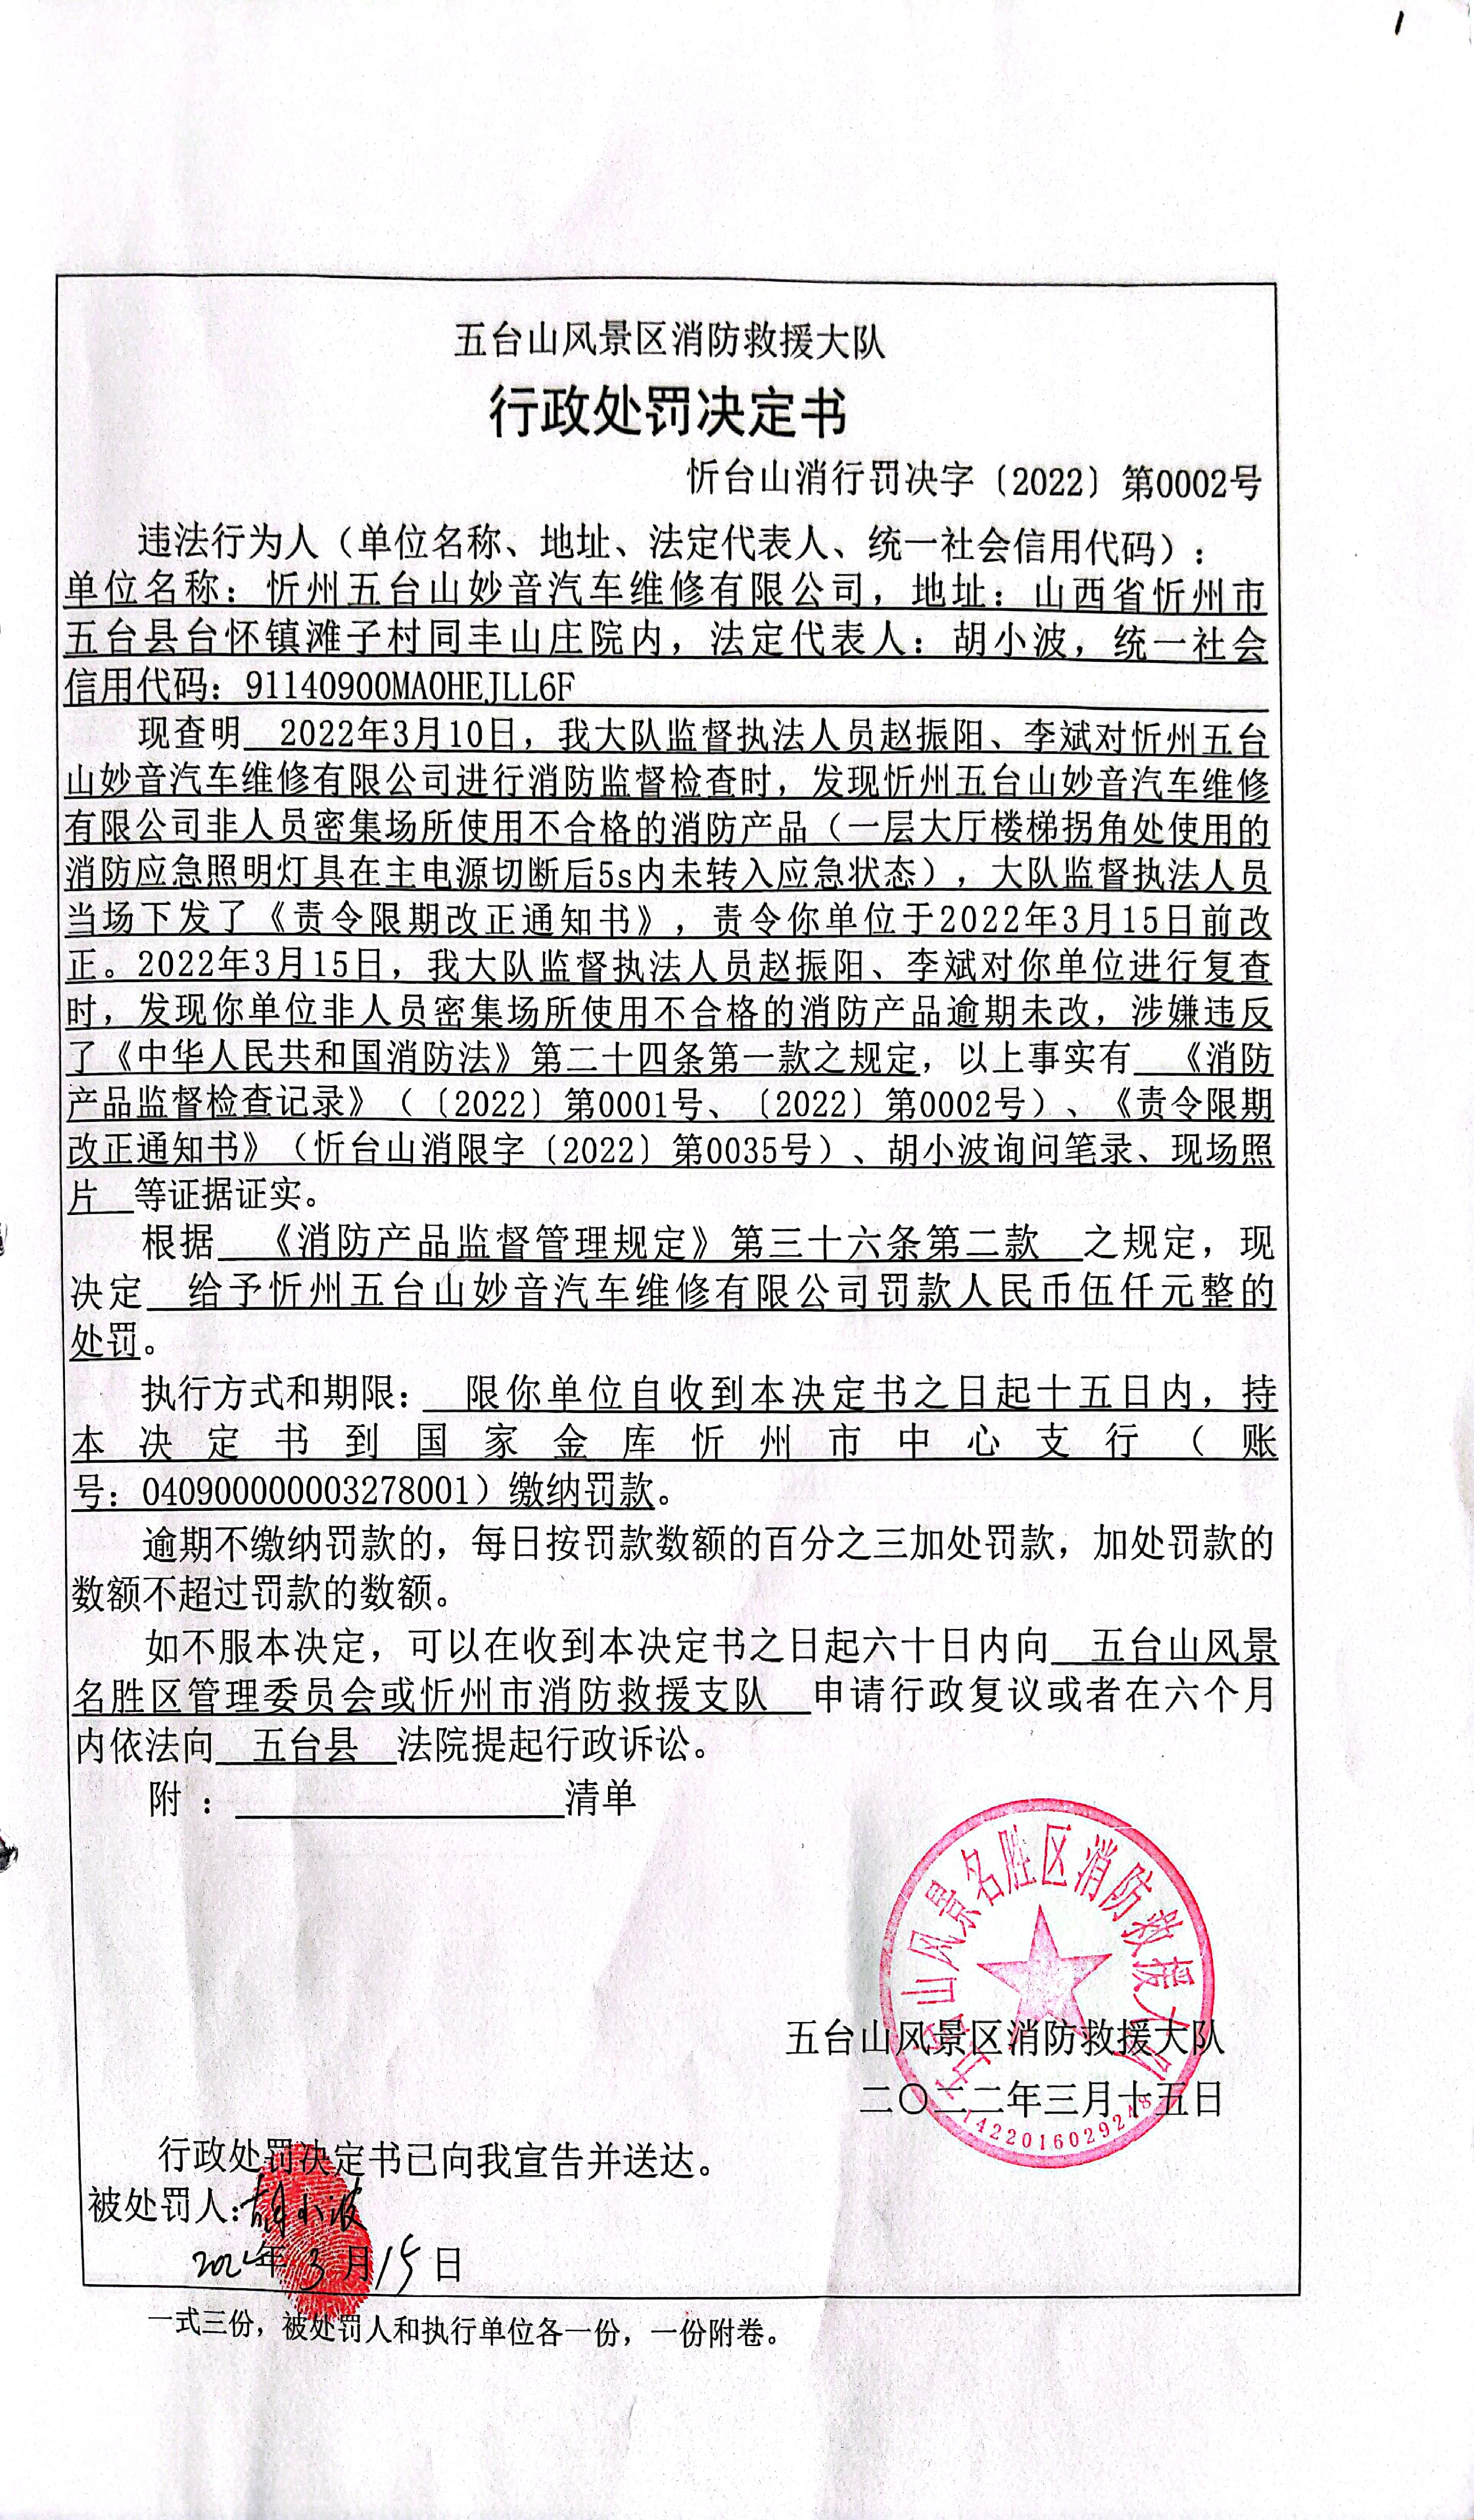 1
五台山风景区消防救援大队
行政处罚决定书
忻台山消行罚决字〔2022〕第0002号
违法行为人（单位名称、地址、法定代表人、统一社会信用代码）：
单位名称：忻州五台山妙音汽车维修有限公司，地址：山西省忻州市
五台县台怀镇滩子村同丰山庄院内，法定代表人：胡小波，统一社会
信用代码：91140900MA0HEJLL6F
现查明 2022年3月10日，我大队监督执法人员赵振阳、李斌对忻州五台
山妙音汽车维修有限公司进行消防监督检查时，发现忻州五台山妙音汽车维修
有限公司非人员密集场所使用不合格的消防产品（一层大厅楼梯拐角处使用的
消防应急照明灯具在主电源切断后5s内未转入应急状态），大队监督执法人员
当场下发了《责令限期改正通知书》，责令你单位于2022年3月15日前改
正。2022年3月15日，我大队监督执法人员赵振阳、李斌对你单位进行复查
时，发现你单位非人员密集场所使用不合格的消防产品逾期未改，涉嫌违反
了《中华人民共和国消防法》第二十四条第一款之规定，以上事实有 《消防
产品监督检查记录》（〔2022〕第0001号、〔2022〕第0002号）、《责令限期
改正通知书》（忻台山消限字〔2022〕第0035号）、胡小波询问笔录、现场照
片 等证据证实。
根据 《消防产品监督管理规定》第三十六条第二款 之规定，现
决定 给予忻州五台山妙音汽车维修有限公司罚款人民币伍仟元整的
处罚。
执行方式和期限： 限你单位自收到本决定书之日起十五日内，持
本决定书到国家金库忻州市中心支行（账
号：040900000003278001）缴纳罚款。
逾期不缴纳罚款的，每日按罚款数额的百分之三加处罚款，加处罚款的
数额不超过罚款的数额。
如不服本决定，可以在收到本决定书之日起六十日内向 五台山风景
名胜区管理委员会或忻州市消防救援支队 申请行政复议或者在六个月
内依法向 五台县 法院提起行政诉讼。
附：清单
五台山风景名胜区消防救援大队
五台山风景区消防救援大队
二〇二二年三月十五日
1422016029248
行政处罚决定书已向我宣告并送达。
被处罚人：胡小波
2022年3月15日
一式三份，被处罚人和执行单位各一份，一份附卷。